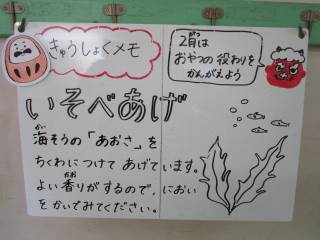 きゅうしょくメモ
2月は
おやつの役わりを
かんがえよう
いそべあげ
海そうの「あおさ」を
ちくわにつけてあげています。
よい香りがするので、におい
をかいでみてください。